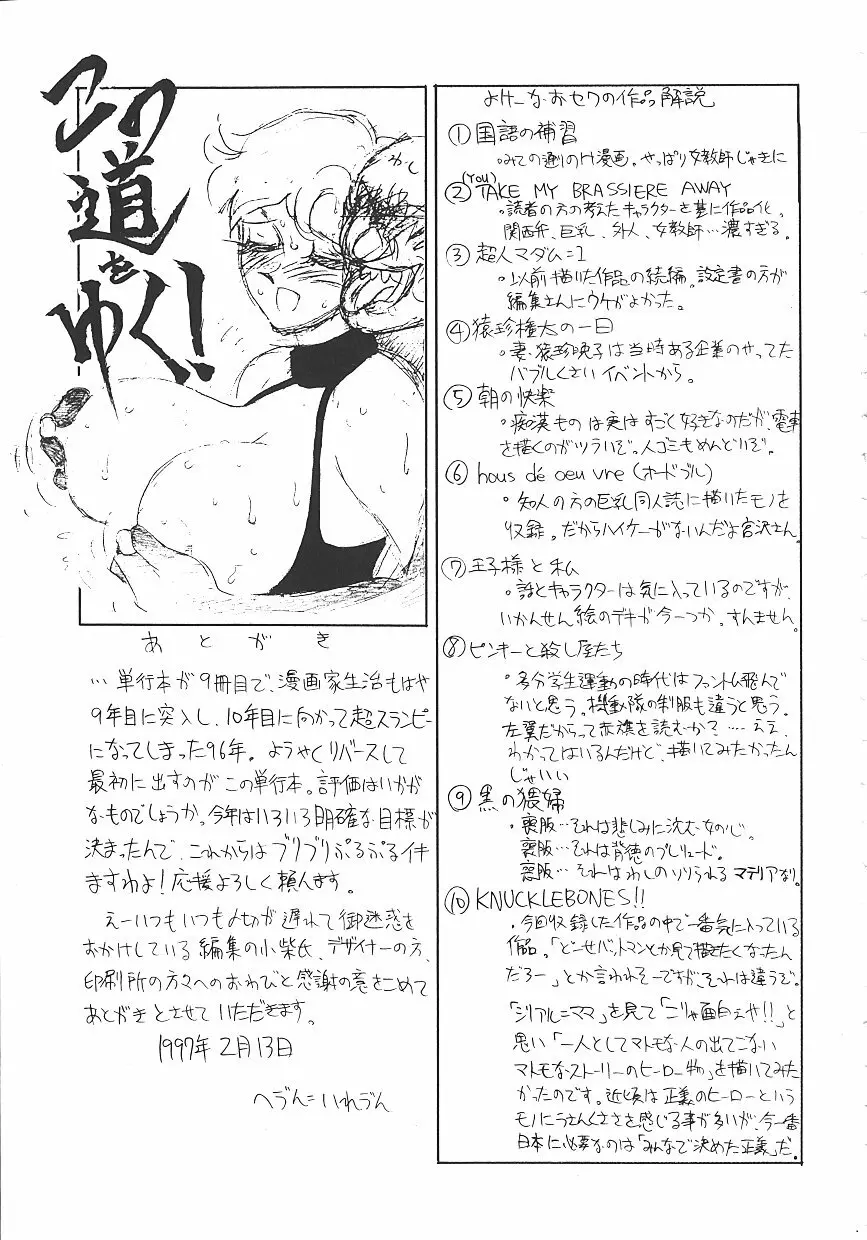 この
道
を
ゆく!
あとがき
…単行本が9冊目で、漫画家生活もはや
9年目に突入し、10年目に向かって超スランピー
になってしまった96年。ようやくリバースして
最初に出すのがこの単行本。評価はいかが
なものでしょうか。今年はいろいろ明確な目標が
決まったんで、これからはブリブリぷるぷるイキ
ますわよ!応援よろしく頼んます。
えーいつもいつも〆切が遅れて御迷惑を
おかけしている編集の小柴氏、デザイナーの方、
印刷所の方々へのおわびと感謝の意をこめて
あとがきとさせていただきます。
1997年2月13日
へづん=いれづん
よけーなおセワの作品解説
①国語の補習
・みての通りのH漫画。やっぱり女教師じゃきに
(You)
②TAKE MY BRASSIERE AWAY
・読者の方の考えたキャラクターを基に作品化。
関西弁、巨乳、外人、女教師…濃すぎる。
③超人マダム=1
・以前描いた作品の続編。設定書の方が
編集さんにウケがよかった。
④猿珍権太の一日
・妻・猿珍映子は当時ある企業のやってた
バブルくさいイベントから。
⑤朝の快楽
・痴漢ものは実はすごく好きなのだが、電車
を描くのがツラいぞ。人ゴミもめんどいぞ。
⑥hous de oeuvre(オードブル)
・知人の方の巨乳同人誌に描いたモノを
収録。だからハイケーがないんだよ宮沢さん。
⑦王子様と私
・話とキャラクターは気に入っているのですが、
いかんせん絵のデキが今一つか。すんません。
⑧ピンキーと殺し屋たち
・多分学生運動の時代はファントム飛んで
ないと思う。機動隊の制服も違うと思う。
左翼だからって赤旗を読むか?…ええ、
わかってはいるんだけど、描いてみたかったん
じゃいい
⑨黒の猥婦
・喪服…それは悲しみに沈む女の心。
喪服…それは背徳のプレリュード。
喪服…それはわしのソソられるマテリアなり。
⑩KNUCKLEBONES!!
・今回収録した作品の中で一番気に入っている
作品。「どーせバットマンとか見て描きたくなったん
だろー」とか言われそーですが、それは違うぞ。
「シリアル=ママ」を見て「こりゃ面白えや!!」と
思い「一人としてマトモな人の出てこない
マトモなストーリーのヒーロー物」を描いてみた
かったのです。近頃は正義のヒーローという
モノにうさんくささを感じる事が多いが、今一番
日本に必要なのは「みんなで決めた正義」だ。